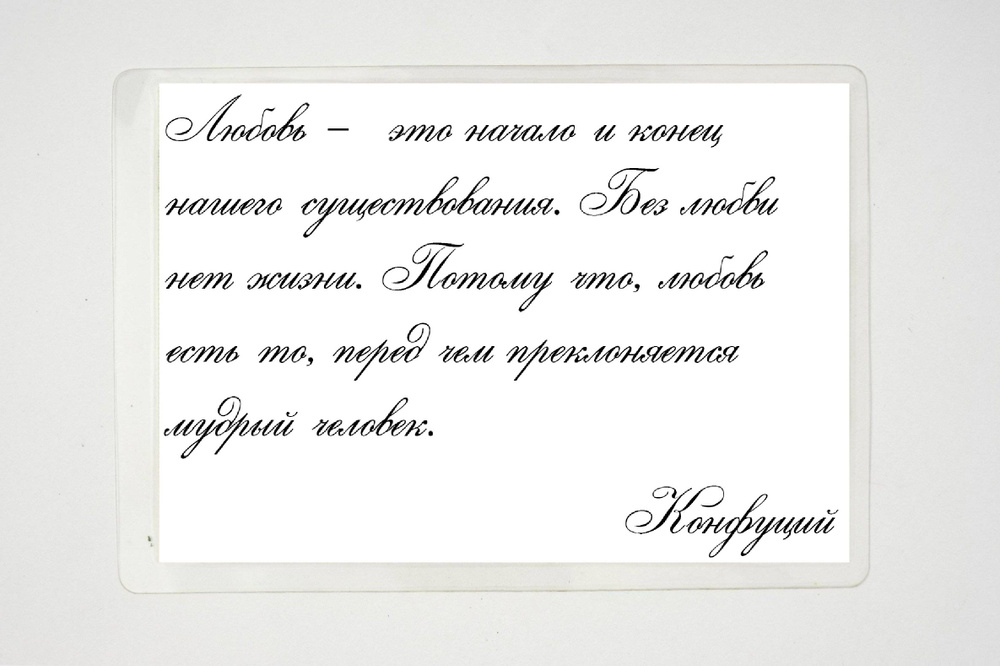 Любовь – это начало и конец
нашего существования. Без любви
нет жизни. Потому что, любовь
есть то, перед чем преклоняется
мудрый человек.
Конфуций